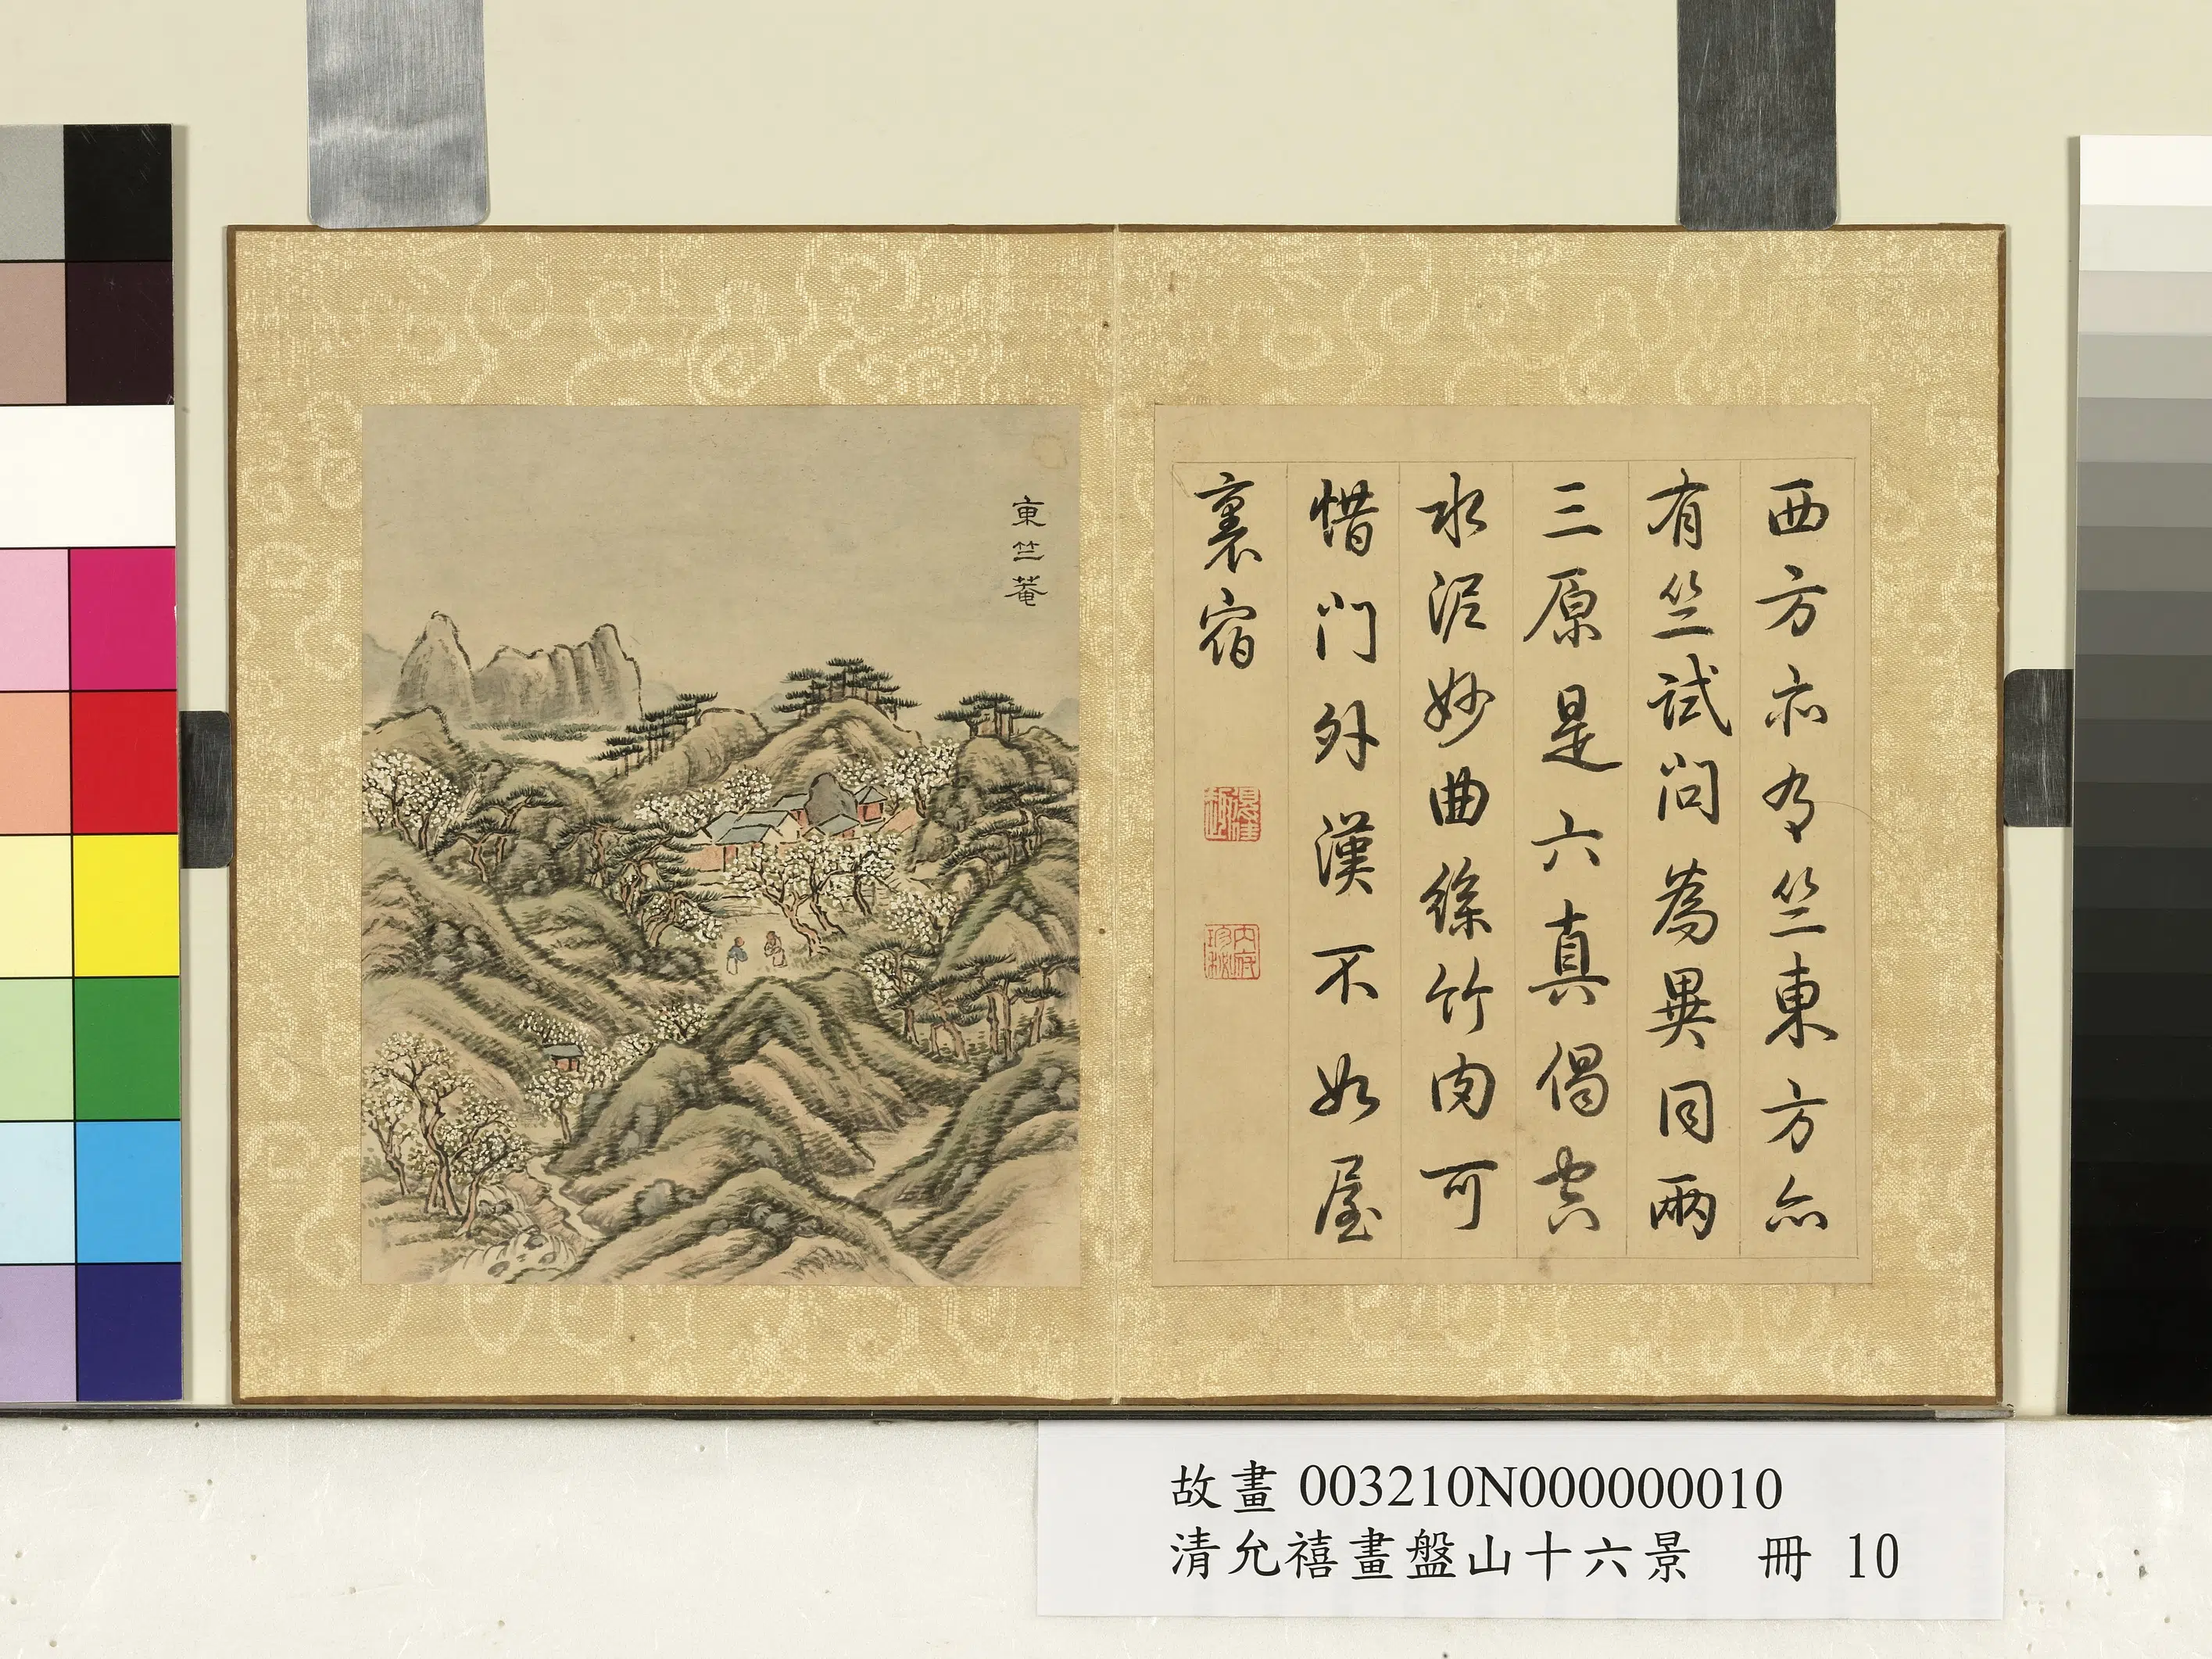 西方亦有竺東方亦
有竺試問為異同兩
三原是六真偈
水泥妙曲絲竹肉可
惜門外漢不如屋
裏宿
內府
珍秘
東竺菴
故畫 003210N000000010
清允禧畫盤山十六景 冊 10